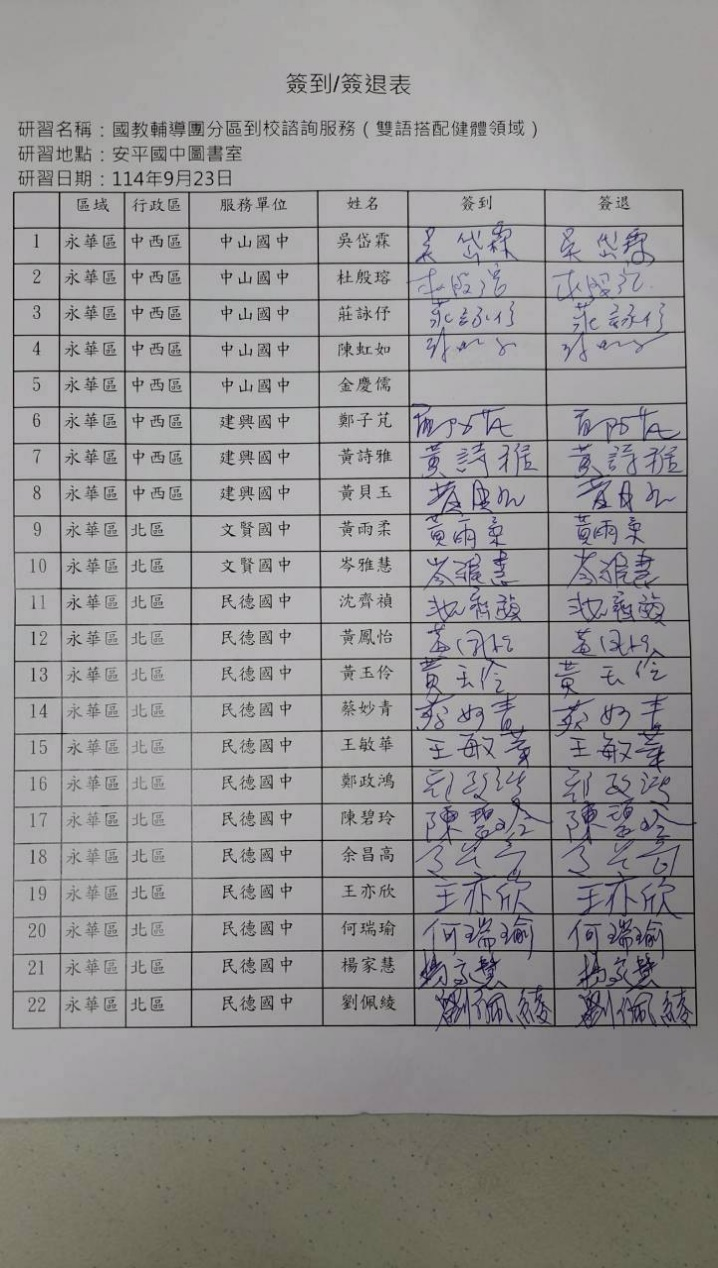 簽到/簽退表
研習名稱：國教輔導團分區到校諮詢服務（雙語搭配健體領域）
研習地點：安平國中圖書室
研習日期：114年9月23日
區域 行政區 服務單位 姓名 簽到 簽退
1 永華區 中西區 中山國中 吳岱霖 吳岱霖 吳岱霖
2 永華區 中西區 中山國中 杜殷瑢
3 永華區 中西區 中山國中 莊詠伃 莊詠伃 莊詠伃
4 永華區 中西區 中山國中 陳虹如
5 永華區 中西區 中山國中 金慶儒
6 永華區 中西區 建興國中 鄭子芃
7 永華區 中西區 建興國中 黃詩雅 黃詩雅 黃詩雅
8 永華區 中西區 建興國中 黃貝玉
9 永華區 北區 文賢國中 黃雨柔 黃雨柔 黃雨柔
10 永華區 北區 文賢國中 岑雅慧 岑雅慧 岑雅慧
11 永華區 北區 民德國中 沈齊禎 沈齊禎 沈齊禎
12 永華區 北區 民德國中 黃鳳怡
13 永華區 北區 民德國中 黃玉伶 黃玉伶 黃玉伶
14 永華區 北區 民德國中 蔡妙青 蔡妙青 蔡妙青
15 永華區 北區 民德國中 王敏華 王敏華 王敏華
16 永華區 北區 民德國中 鄭政鴻
17 永華區 北區 民德國中 陳碧玲 陳碧玲 陳碧玲
18 永華區 北區 民德國中 余昌高
19 永華區 北區 民德國中 王亦欣 王亦欣 王亦欣
20 永華區 北區 民德國中 何瑞瑜 何瑞瑜 何瑞瑜
21 永華區 北區 民德國中 楊家慧 楊家慧 楊家慧
22 永華區 北區 民德國中 劉佩綾 劉佩綾 劉佩綾